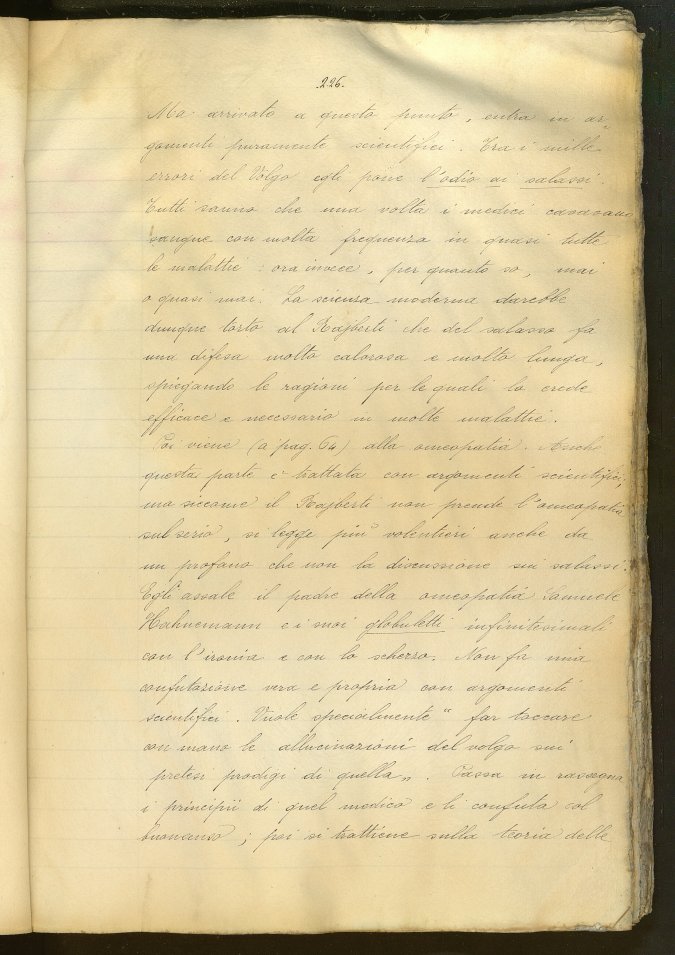 .226.
Ma arrivato a questo punto, entra in ar=
gomenti puramente scientifici. Tra i mille
errori del Volgo egli pone l'odio ai salassi.
Tutti sanno che una volta i medici cavavano
sangue con molta frequenza in quasi tutte
le malattie: ora invece, per quanto so, mai
o quasi mai. La scienza moderna darebbe
dunque torto al Rajberti che del salasso fa
una difesa molto calorosa e molto lunga,
spiegando le ragioni per le quali lo crede
efficace e necessario in molte malattie.
Poi viene (a pag. 64) alla omeopatia. Anche
questa parte è trattata con argomenti scientifici,
ma siccome il Rajberti non prende l'omeopatia
sul serio, si legge più volentieri anche da
un profano che non la discussione sui salassi.
Egli assale il padre della omeopatia Samuele
Hahnemann e i suoi globuletti infinitesimali
con l'ironia e con lo scherzo. Non fa una
confutazione vera e propria con argomenti
scientifici. Vuole specialmente "far toccare
con mano le allucinazioni del volgo sui
pretesi prodigi di quella". Passa in rassegna
i principii di quel medico e li confuta col
buonsenso; poi si trattiene sulla teoria delle